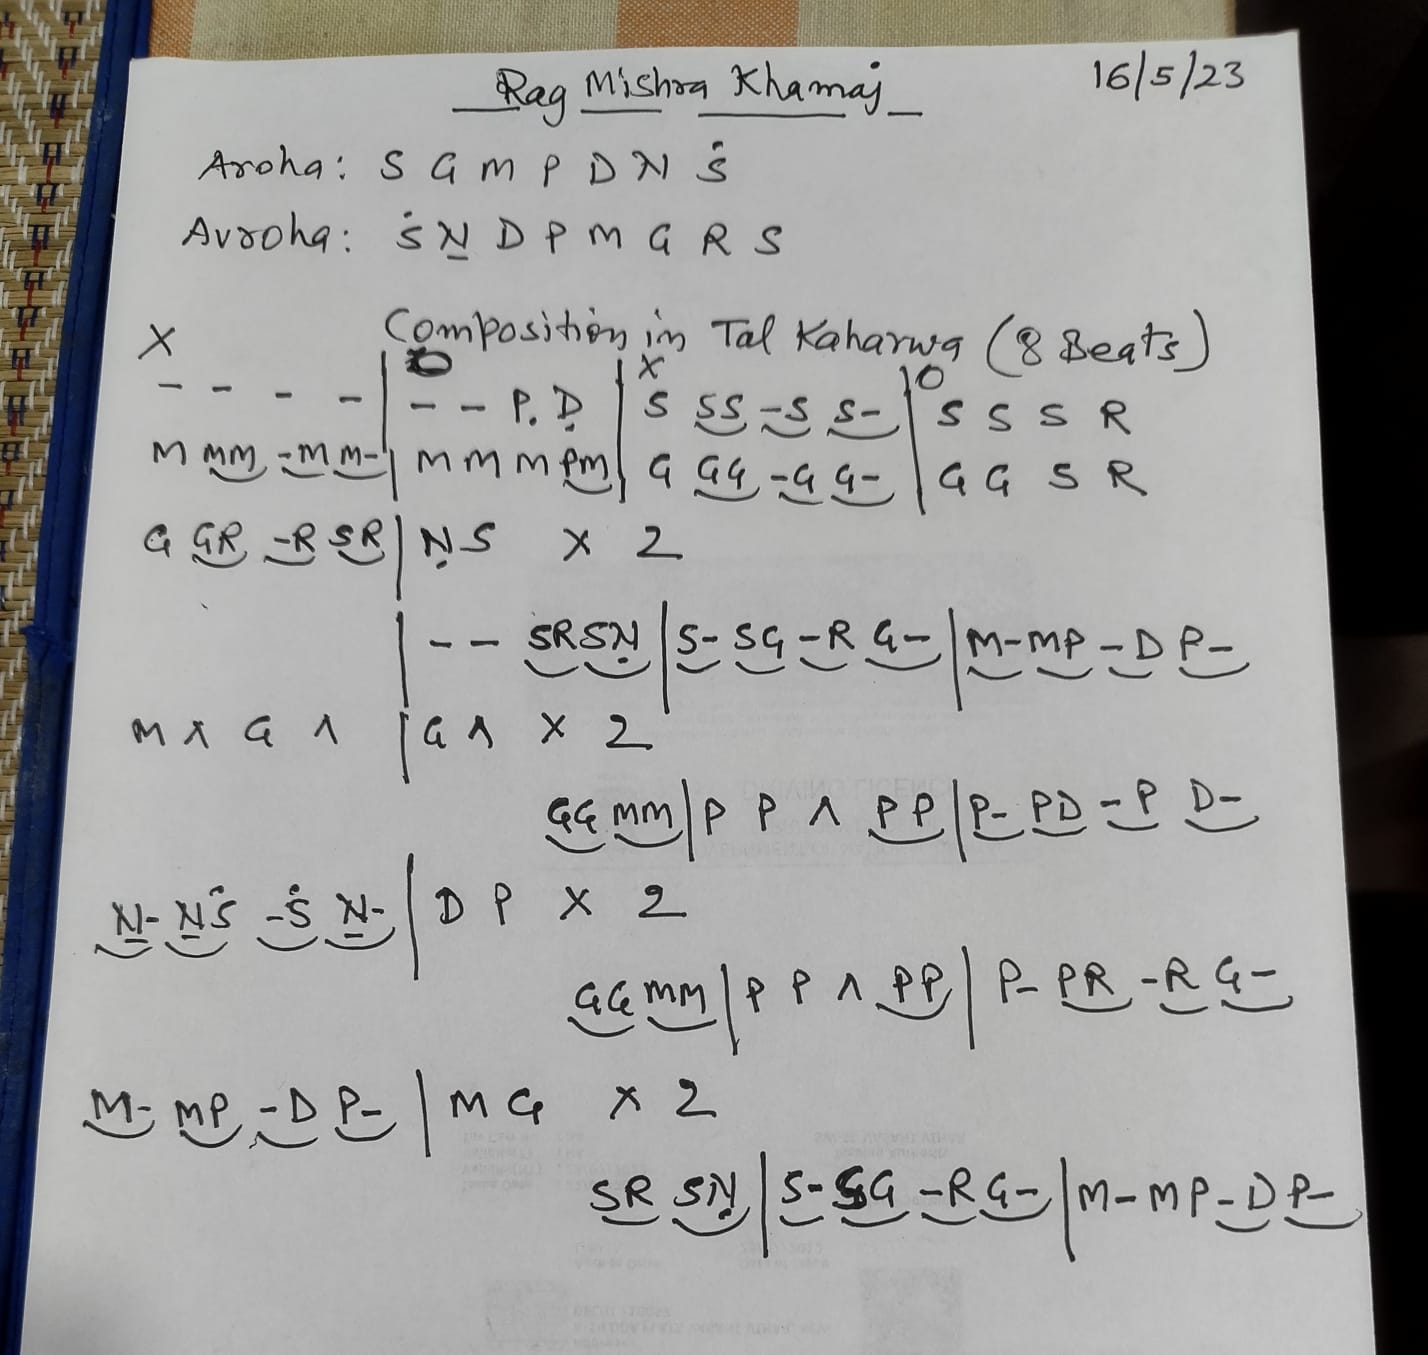 Rag Mishra Khamaj 16/5/23
Aroha: S G M P D N Ṡ
Avroha: Ṡ N̲ D P M G R S
Composition in Tal Kaharwa (8 Beats)
X 0 X 0
- - - - | - - Ṗ Ḍ | S SS -S S- | S S S R
M MM -M M- | M M M PM | G GG -G G- | G G S R
G GR -R SR | Ṇ S X 2
| - - SR SṆ | S- SG -R G- | M- MP -D P-
M ∧ G ∧ | G ∧ X 2
GG MM | P P ∧ PP | P- PD -P D-
N̲- N̲Ṡ -Ṡ N̲- | D P X 2
GG MM | P P ∧ PP | P- PR -R G-
M- MP -D P- | M G X 2
SR SṆ | S- SG -R G- | M- MP -D P-